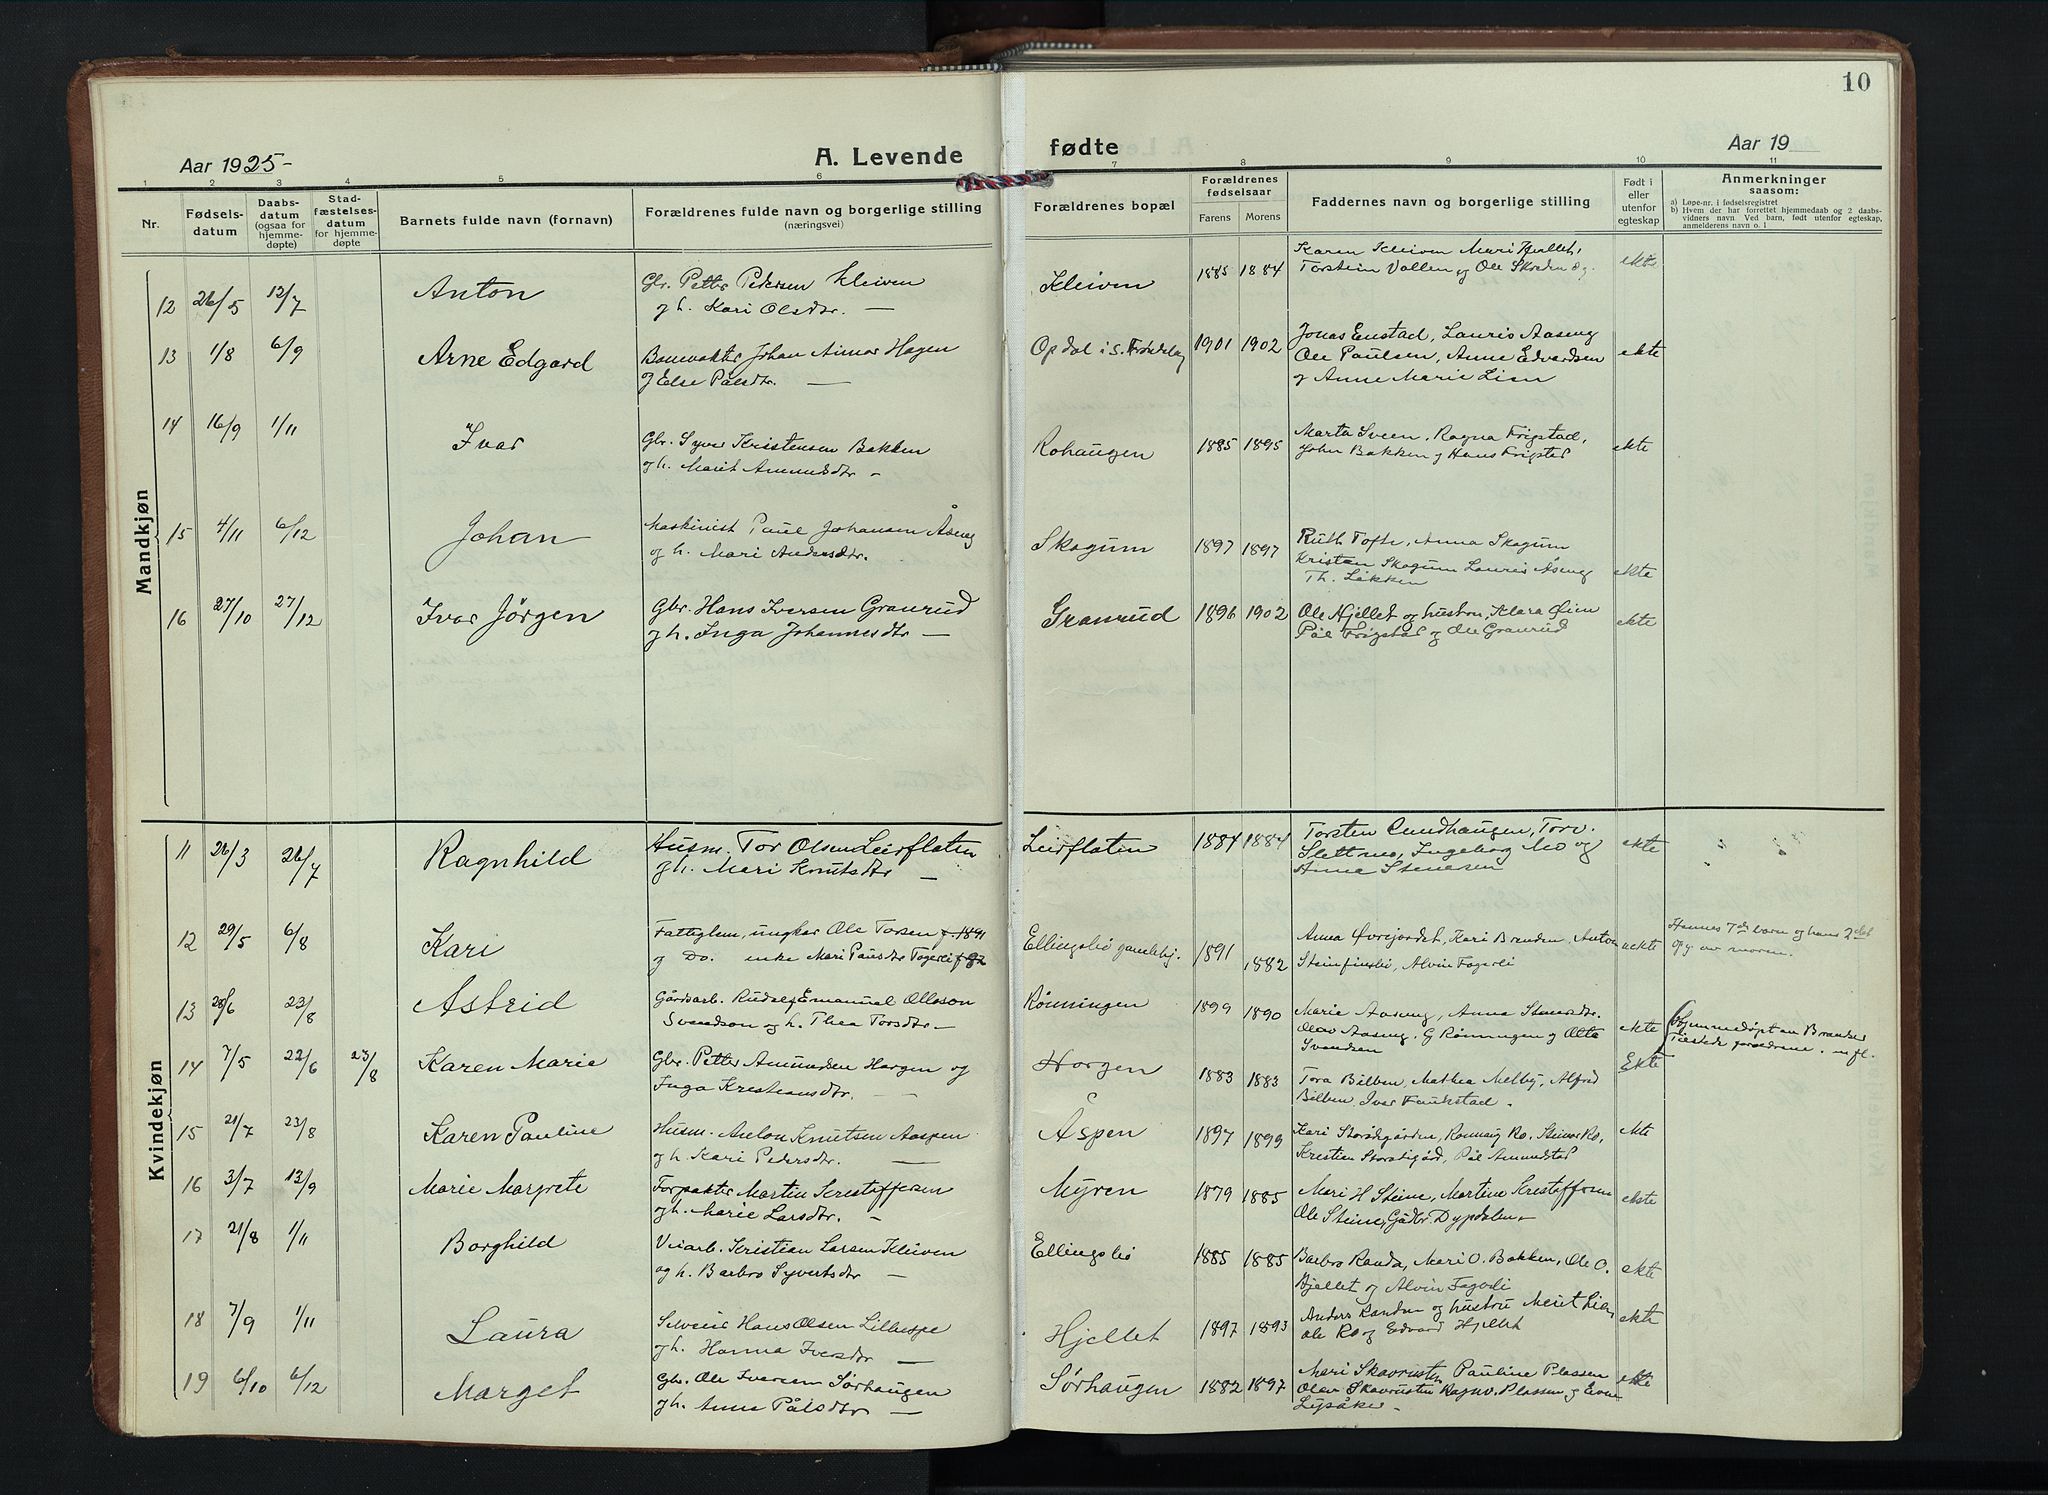 10
Aar 1925-
A. Levende
fødte
Aar 19
1 2 3 4 5 6 7 8 9 10 11
Nr.
Fødsels-
datum
Daabs-
datum
(ogsaa for
hjemme-
døpte)
Stad-
fæstelses-
datum
for hjemme-
døpte
Barnets fulde navn (fornavn)
Forældrenes fulde navn og borgerlige stilling
(næringsvei)
Forældrenes bopæl
Forældrenes
fødselsaar
Farens Morens
Faddernes navn og borgerlige stilling
Født i
eller
utenfor
egteskap
Anmerkninger
saasom:
a) Løpe-nr. i fødselsregistret
b) Hvem der har forrettet hjemmedaab og 2 daabs-
vidners navn. Ved barn, født utenfor egteskap,
anmelderens navn o. l
Mandkjøn
12 26/5 12/7 Anton
Gbr. Petter Pedersen Kleiven
og h. Kari Olsdtr. —
Kleiven 1885 1884
Karen Kleiven Mari Hjellet,
Torstein Vollen og Ole
ekte
13 1/8 6/9 Arne Edgard
Banevokter Johan Hagen
og Else Pålsdtr. —
Opdal i S. Trøndelag 1901 1902
Jonas Enstad, Lauris Aaseng
Ole Paulsen, Anne Edvardsen
og Anne Marie Lien
ekte
14 16/9 1/11 Ivar
Gbr. Syver Kristensen Bakken
og h. Marit Amundsdtr —
Rohaugen 1885 1895
Marta Sveen, Ragna Frigstad,
John Bakken og Hans Frigstad
ekte
15 4/11 6/12 Johan
Maskinist Paul Johansen Åseng
og h. Mari Andersdtr.
Skogum 1897 1897
Ruth Tofte, Anna Skogum
Kristen Skogum Lauris Åseng
Th. Løkken
ekte
16 27/10 27/12 Ivar Jørgen
Gbr. Hans Iversen Granrud
og h. Inga Johannesdtr —
Granrud 1896 1902
Ole Hjellet og hustru, Klara Øien
Pål Frigstad og Ole Granrud
ekte
Kvindekjøn
11 26/3 26/7 Ragnhild
Husm. Tor Olsen Leirflaten
og h. Mari Knutsdtr —
Leirflaten 1884 1884
Torsten Sundhaugen, Torv.
Slettmo, Ingeborg Mo og
Anna Stenersen
ekte
12 29/5 6/8 Kari
Fattiglem, ungkar Ole Torsen f. 1891
og Do. enke Mari Paulsdtr Fagerli f. 82
Ellingsbø gamlehj. 1891 1882
Anna Øvrejordet, Kari Brenden, Anton
Steinfinsbø, Alvin Fagerli
uekte
Hennes 7de barn og hans 2det
Opg. av moren.
13 28/6 23/8 Astrid
Gårdsarb. Rudolf Emanuel Olloson
Svendson og h. Thea Torsdtr —
Rønningen 1899 1890
Marie Aaseng, Anna Stenersdtr.
Olav Aaseng, G Rønningen og Otto
Svendsen
ekte
14 7/5 22/6 23/8 Karen Marie
Gbr. Petter Amundsen Horgen og
Inga Kristiansdtr. —
Horgen 1883 1883
Tora Bilben, Mathea Melby, Alfred
Bilben, Ivar Faukstad.
Ekte
Hjemmedøpt av
Tilstede foreldrene. m fl.
15 21/7 23/8 Karen Pauline
Husm. Anton Knutsen Aaspen
og h. Kari Pedersdtr. —
Åspen 1897 1899
Kari Storødegården, Rønnaug Ro, Steinar Ro,
Kristian Storødegård, Pål Amundstad
ekte
16 3/7 13/9 Marie Margrete
Forpakter Martin Kristoffersen
og h. Marie Larsdtr. —
Myren 1879 1885
Mari H Steine, Martine Kristoffersen
Ole Steine, Gudbr. Dypdalen —
ekte
17 21/8 1/11 Borghild
Veiarb. Kristian Larsen Kleiven
og h. Barbro Syvertsdtr —
Ellingsbø 1885 1885
Barbro Randa, Mari O. Bakken, Ole O.
Hjellet og Alvin Fagerli
ekte
18 7/9 1/11 Laura
Selveier Hans Olsen Lillespe
og h. Hanna Iversdtr —
Hjellet 1897 1893
Anders Randen og hustru Marit Lien
Ole Ro og Edvard Hjellet
ekte
19 6/10 6/12 Marget
Gbr. Ole Iversen Sørhaugen
og h. Anne Pålsdtr —
Sørhaugen 1882 1897
Mari Skavrusten Pauline Plassen
Olav Skavrusten Ragnv. Plassen og
ekte